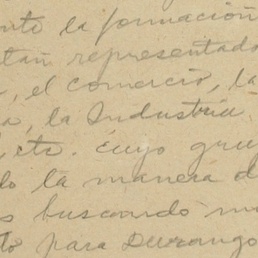 nte la formación
tan representado
, el comercio, la
a, la Industria
, etc. Cuyo gru
do la manera d
s buscando m
to para Durango